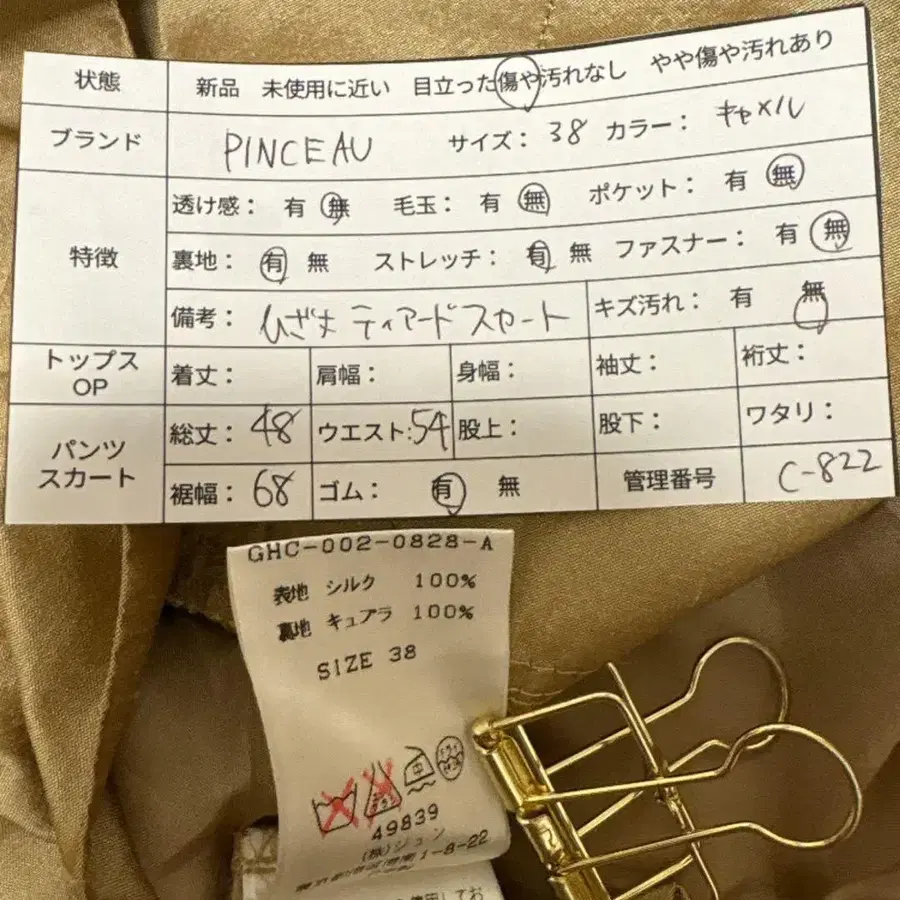 状態 新品 未使用に近い 目立った傷や汚れなし やや傷や汚れあり
ブランド PINCEAU サイズ: 38 カラー: キャメル
特徴 透け感: 有 無 毛玉: 有 無 ポケット: 有 無
裏地: 有 無 ストレッチ: 有 無 ファスナー: 有 無
備考: ひざ丈 ティアードスカート キズ汚れ: 有 無
トップス OP 着丈: 肩幅: 身幅: 袖丈: 裄丈:
パンツ スカート 総丈: 48 ウエスト: 54 股上: 股下: ワタリ:
裾幅: 68 ゴム: 有 無 管理番号 C-822
GHC-002-0828-A
表地 シルク 100%
裏地 キュプラ 100%
SIZE 38
中
49839
(株)ジュン
1-8-22